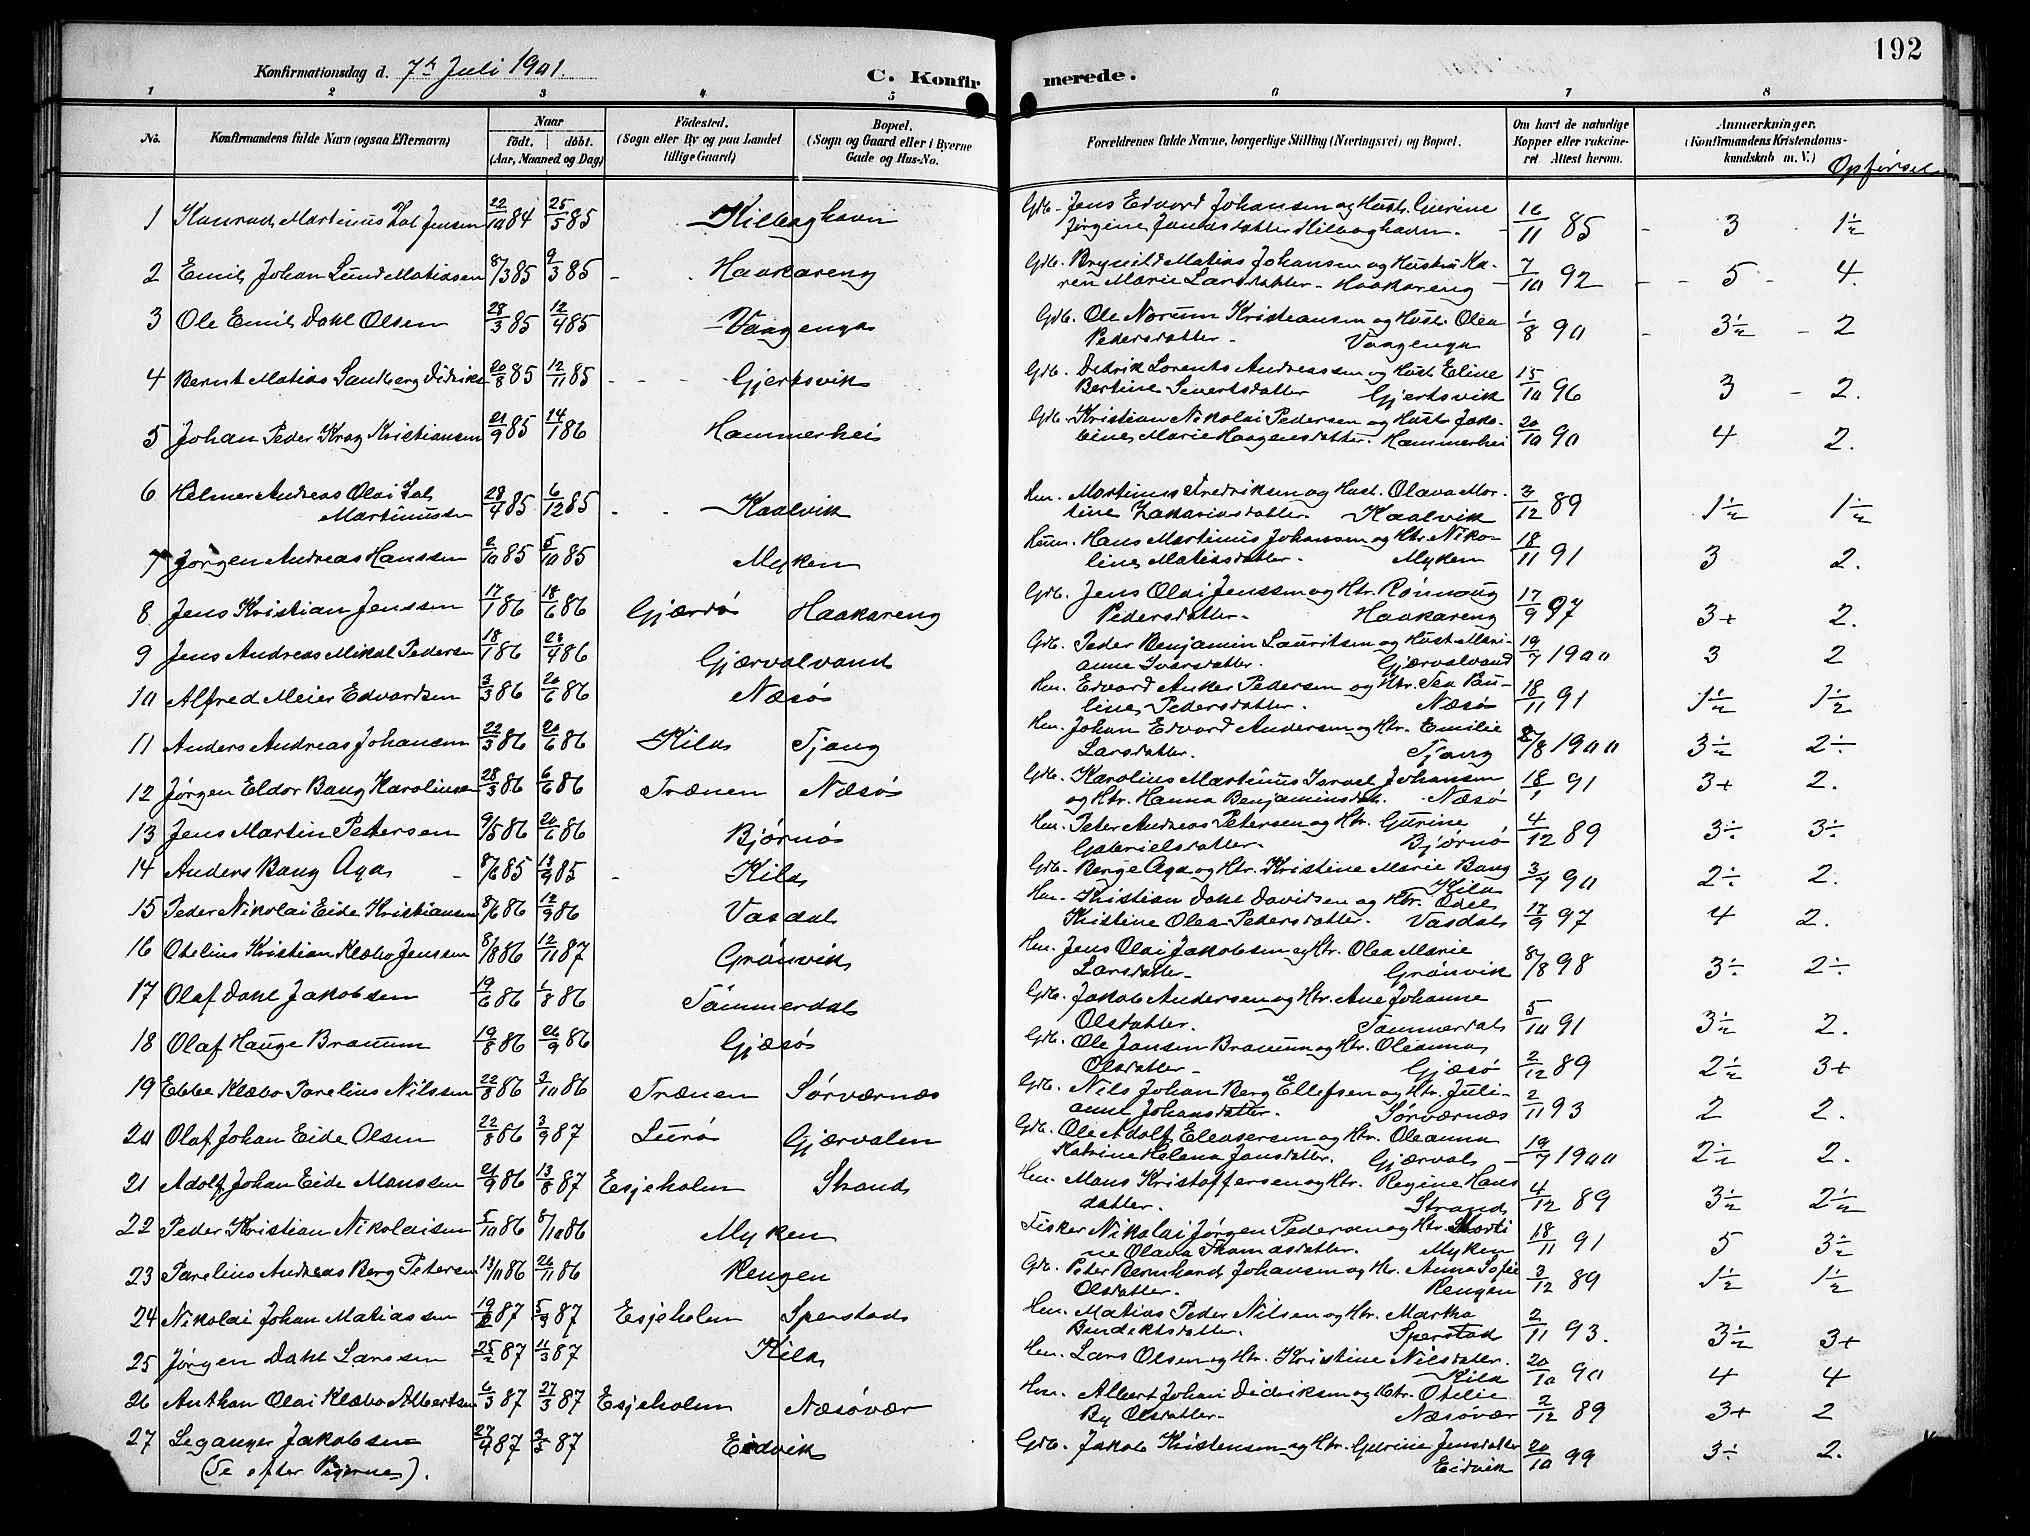 192
Konfirmationsdag d. 7de Juli 1901.
C. Konfirmerede.
1 2 3 4 5 6 7 8
No.
Konfirmandens fulde Navn (ogsaa Efternavn)
Naar
født. døbt.
(Aar, Maaned og Dag)
Fødested.
(Sogn eller By og paa Landet tillige Gaard)
Bopæl.
(Sogn og Gaard eller i Byerne Gade og Hus-No.
Forældrenes fulde Navne, borgerlige Stilling (Næringsvei) og Bopæl.
Om havt de naturlige Kopper eller vakcineret Attest herom.
Anmærkninger.
(Konfirmandens Kristendomskundskab m. V.)
Opførsel
1 Konrad Martinus Jensen 22/10 84 25/5 85 Kilboghavn Gdb. Jens Edvard Johansen og Hustr. Gurine
Jørgine Kilboghavn. 16/11 85 3 1½
2 Emil Johan Lund Matiasen 8/3 85 9/3 85 Haakareng Gdb. Brynild Matias Johansen og Hustru Ka-
ren Marie Larsdatter. Haakareng 7/10 92 5 4.
3 Ole Emil Dahl Olsen 28/3 85 12/4 85 Vaagenga Gdb. Ole Norum Kristiansen og Hustr. Olea
Pedersdatter Vaagenga 1/8 90 3½ 2
4 Bernt Matias Sandberg Didriks 20/8 85 12/11 85 Gjertsvik Gdb. Didrik Lorents Andreassen og Hust Eline
Bertine Sivertsdatter Gjertsvik 15/10 96 3 2.
5 Johan Peder Krog Kristiansen 21/9 85 14/1 86 Hammerhei Gdb. Kristian Nikolai Pedersen og Hustr Jako-
bine Marie Haagensdatter. Hammerhei 20/10 90 4 2.
6 Helmer Andreas Olai
Martinussen 28/4 85 6/12 85 Kaalvik Hm. Martinus Fredriksen og Hust. Olava Mar-
tine Zakariasdatter. Kaalvik 3/12 89 1½ 1½
7 Jørgen Andreas Hanssen 2/10 85 5/10 85 Myken Husm. Hans Martinus Johansen og Htr. Niko-
line Matiasdatter. Myken 18/11 91 3 2.
8 Jens Kristian Jenssen 17/1 86 18/6 86 Gjærdø Haakareng Gdb. Jens Olai Jenssen og Htr. Rønnoug
Pedersdatter. Haakareng 17/9 97 3+ 2.
9 Jens Andreas Mikal Pedersen 18/1 86 23/4 86 Gjærvalvand Gdb. Peder Benjamin Lauritsen og Hust Mari-
anne Iversdatter. Gjærvalvand 19/7 1900 3 2
10 Alfred Meier Edvardsen 3/3 86 20/6 86 Næsø Hm. Edvard Anker Pedersen og Htr. Tea Pau-
line Pedersdatter. Næsø 18/11 91 1½ 1½
11 Anders Andreas Johansen 22/3 86 20/6 86 Kila Tjong Hm. Johan Edvard Andersen og Htr. Emilie
Larsdatter. Tjong 8/8 1900 3½ 2÷
12 Jørgen Eldor Bang Karolinsen 28/3 86 6/6 86 Trænen Næsø Gdb. Karolius Martinus Israel Johansen
og Htr. Hanna Benjaminsdtr. Næsø 18/1 91 3+ 2.
13 Jens Martin Petersen 9/5 86 20/6 86 Bjørnø Hm. Peter Andreas Petersen og Htr. Gurine
Gabrielsdatter. Bjørnø 4/12 89 3÷ 3÷
14 Anders Bang Aga 8/6 85 13/9 85 Kila Gdb. Berge Aga og Htr. Kristine Marie Bang
Kila 3/7 90 2÷ 2.
15 Peder Nikolai Eide Kristiansen 8/6 86 12/9 86 Vasdal Hm. Kristian Dahl Davidsen og Htr. Odel
Kristine Olea Pedersdatter. Vasdal 17/9 97 4 2.
16 Otelius Kristian Klæbo Jenssen 8/8 86 12/11 87 Grønvik Hm. Jens Olai Jakobsen og Htr. Olea Marie
Larsdatter Grønvik 8/8 98 3÷ 2÷
17 Olaf Dahl Jakobsen 19/6 86 1/8 86 Tømmerdal Gdb. Jakob Andersen og Htr. Ane Johanne
Olsdatter. Tømmerdal 5/10 91 3½ 2.
18 Olaf Hauge Braum 19/8 86 26/9 86 Gjæsø Gdb. Ole Jansen Braum og Htr. Oleanna
Olsdatter Gjæsø 2/12 89 2½ 3+
19 Ebbe Klæbo Parelius Nilssen 22/8 86 3/10 86 Trænen Sørværnæs Gdb. Nils Johan Berg Ellefsen og Htr. Juli-
anne Johansdatter. Sørværnæs 2/11 93 2 2.
20 Olaf Johan Eide Olsen 22/8 86 3/9 87 Lurø Gjærvalen Gdb. Ole Adolf Eleasersen og Htr. Oleanna
Katrine Helena Jansdatter. Gjærval 19/7 1900 2½ 2.
21 Adolf Johan Eide Monssen 21/9 86 13/8 87 Esjeholm Strand Hm. Mons Kristoffersen og Htr. Regine Hans
datter. Strand 4/12 89 3½ 2½
22 Peder Kristian Nikolaisen 5/10 86 8/10 86 Myken Fisker Nikolai Jørgen Pedersen og Htr. Marti
ne Olava Thomasdatter. Myken 18/11 91 5 3÷
23 Parelius Andreas Berg Petersen 13/11 86 26/11 86 Rengen Gdb. Peter Bernhard Johansen og Htr. Anna Sofie
Olsdatter. Rengen 3/12 89 1½ 1½
24 Nikolai Johan Matiassen 19/2 87 5/9 87 Esjeholm Sperstad Hm. Matias Peder Nilsen og Htr. Martha
Bendiktsdatter. Sperstad 2/11 93. 3½ 3+
25 Jørgen Dahl Larssen 25/2 87 11/3 87 Kila Hm. Lars Olsen og Htr. Kristine Nilsdatter.
Kila 20/10 90 4 4
26 Anthon Olai Klæbo Albertsen 6/3 87 27/3 87 Esjeholm Næsøvær Hm. Albert Johan Didriksen og Htr. Otelie
By Olsdatter Næsøvær 2/12 89 3+ 2
27 Leganger Jakobsen 27/4 87 3/5 87 Eidvik Gdb. Jakob Kristensen og Htr. Gurine Jensdatter
(Se efter Pigerne). Eidvik 20/10 99 3÷ 2.